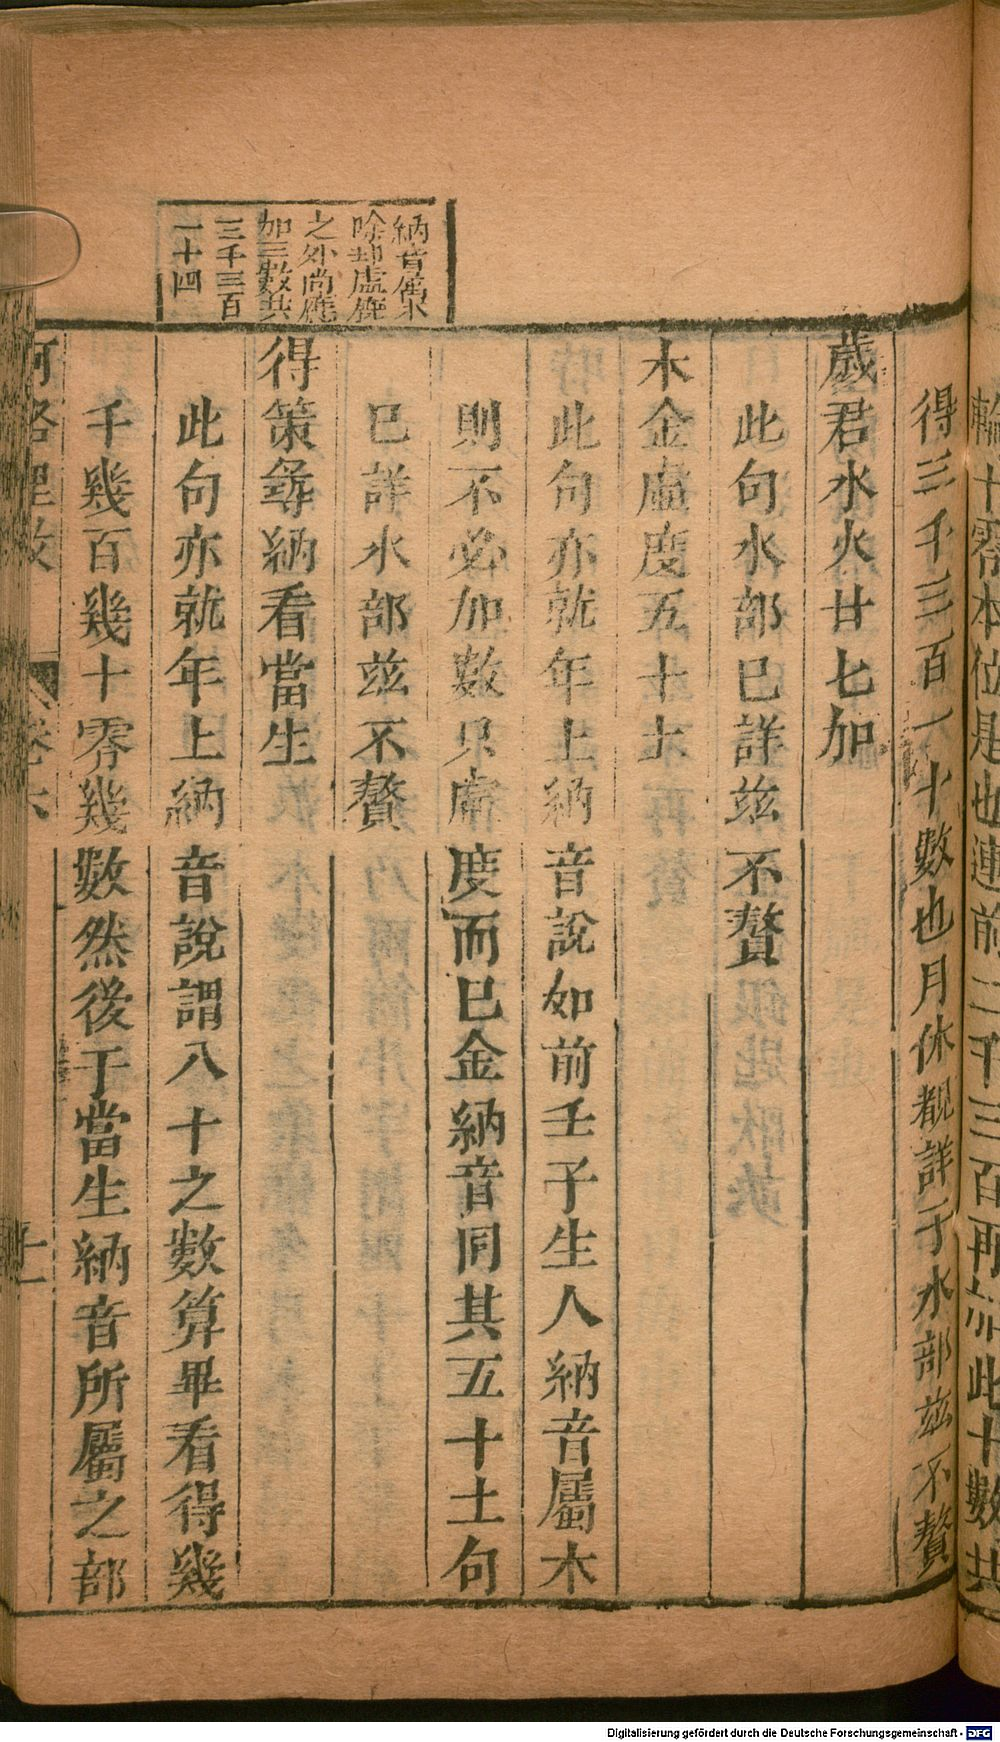 輪十零本位是也連前三千三百再加此十數共
得三千三百一十數也月休覩詳于水部玆不贅
歲君水火廿七加
此句水部已詳玆不贅
木金虛度五十土
此句亦就年上納音說如前壬子生人納音屬木
則不必加數只虛度而已金納音同其五十土句
已詳水部玆不贅
得策尋納看當生
此句亦就年上納音說謂八十之數算畢看得幾
千幾百幾十零幾數然後于當生納音所屬之部
納音屬木
除却虛度
之外尚應
加三數共
三千三百
一十四
河洛理數
卷六
十一
Digitalisierung gefördert durch die Deutsche Forschungsgemeinschaft - DFG